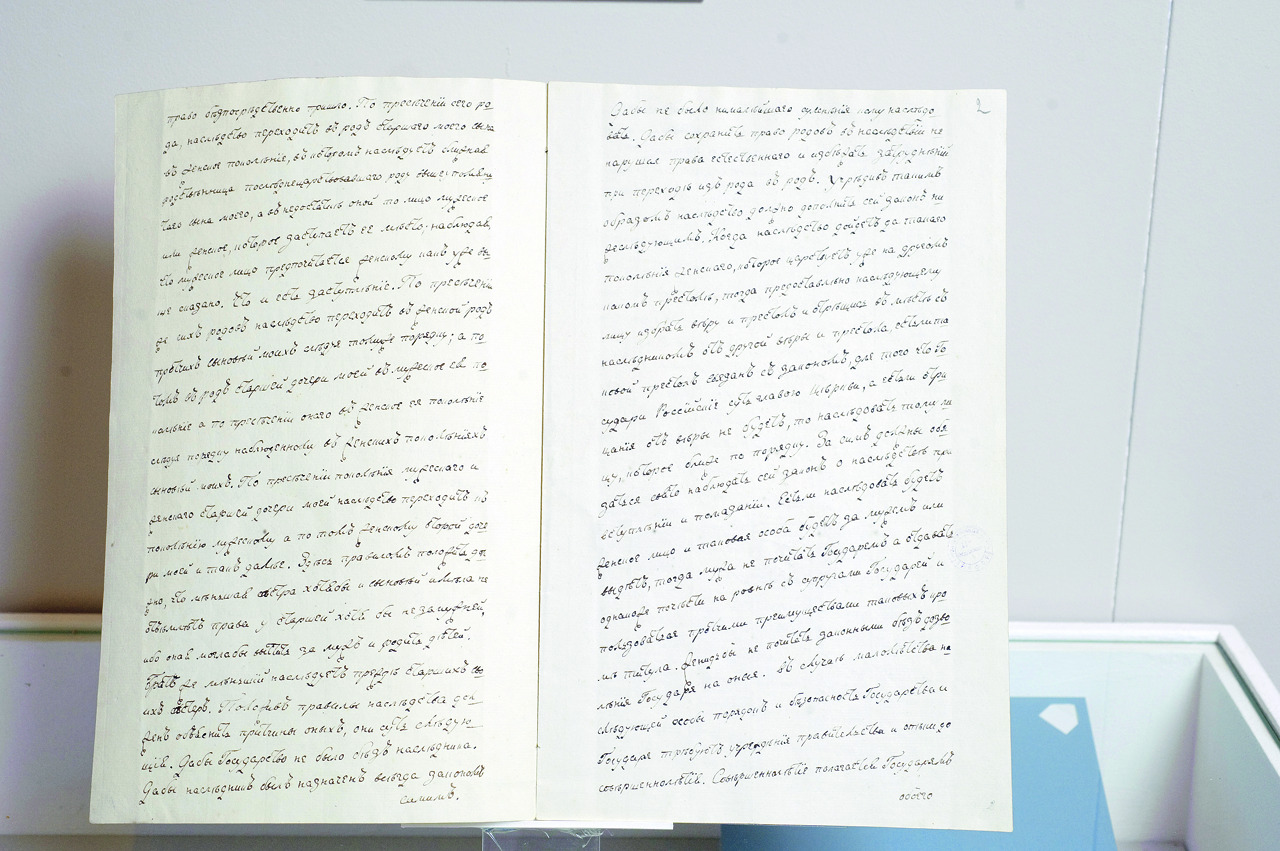 право безпосредственно пришло. По пресечении сего ро-
да, наследство переходитъ въ родъ старшаго моего сына
въ женское поколѣніе, въ которомъ наслѣдуетъ ближняя
родственница последнецарствовавшаго роду вышеупомяну-
таго сына моего, а въ недостаткѣ оной то лицо мужеское
или женское, которое заступаетъ ее мѣсто, наблюдая,
что мужеское лицо предпочитается женскому какъ уже вы-
ше сказано. Что и есть заступленіе. По пресеченіи
же сихъ родовъ наслѣдство переходитъ въ женской родъ
протчихъ сыновей моихъ слѣдуя томуже порядку; а по-
томъ въ родъ старшей дочери моей въ мужеское ея по-
колѣніе а по пресѣченіи онаго въ женское ея поколѣніе
слѣдуя порядку наблюденному въ женскихъ поколѣніяхъ
сыновей моихъ. По пресѣченіи поколѣнія мужескаго и
женскаго старшей дочери моей наслѣдство переходитъ къ
поколѣнію мужескому а по томъ женскому второй доче-
ри моей и такъ далѣе. Здѣсь правиломъ положить дол-
жно, что мѣньшая сѣстра хотябы и сыновей имѣла не
отъемлетъ права у старшей хотя бы незамужней,
ибо оная моглабы вытить за мужъ и родить дѣтей.
Братъ же мѣньшій наслѣдуетъ прѣжде старшихъ сво-
ихъ сѣстеръ. Положивъ правилы наслѣдства дол-
женъ объяснить причины оныхъ, они суть слѣдую-
щія. Дабы Государство не было бѣзъ наслѣдника.
Дабы наслѣдникъ былъ назначенъ всегда закономъ
самимъ.
2
Дабы не было ни малѣйшаго сумнѣнія кому наслѣдо-
вать. Дабы сохранить право родовъ въ наслѣдствіи не
нарушая права естественнаго и избѣжать затруднѣній
при переходѣ изъ рода въ родъ. Учредивъ такимъ
образомъ наслѣдство должно дополнить сей законъ ни-
жеслѣдующимъ. Когда наслѣдство дойдетъ до такаго
поколѣнія женскаго, которое царствуетъ уже на другомъ
какомъ престолѣ, тогда предоставлено наслѣдующему
лицу избрать вѣру и престолъ и отрѣщись въ мѣстѣ съ
наслѣдникомъ отъ другой вѣры и престола, естьли та-
ковой престолъ связанъ съ закономъ, для того что Го-
судари Россійскіе суть главою церкви, а естьли отри-
цанія отъ вѣры не будетъ, то наслѣдовать тому ли-
цу, которое ближе по порядку. За симъ должны обя-
заться свято наблюдать сей законъ о наслѣдствѣ при
вступленіи и помазаніи. Естьли наслѣдовать будетъ
женское лицо и таковая особа будетъ за мужемъ или
выдетъ, тогда мужа не почитать Государемъ а отдавать
однакоже почьести на ровнѣ съ супругами Государей и
пользоваться протчими преимуществами таковыхъ кро-
мѣ титула. Женидьбы не почитать законными бѣзъ дозво-
лѣнія Государя на оныя. Въ случаѣ малолѣтства на-
слѣдующей особы порядокъ и безопасность Государства и
Государя требуютъ учреждѣнія правительства и опѣки до
совершеннолѣтія. Совершеннолѣтіе полагается Государямъ
обоего